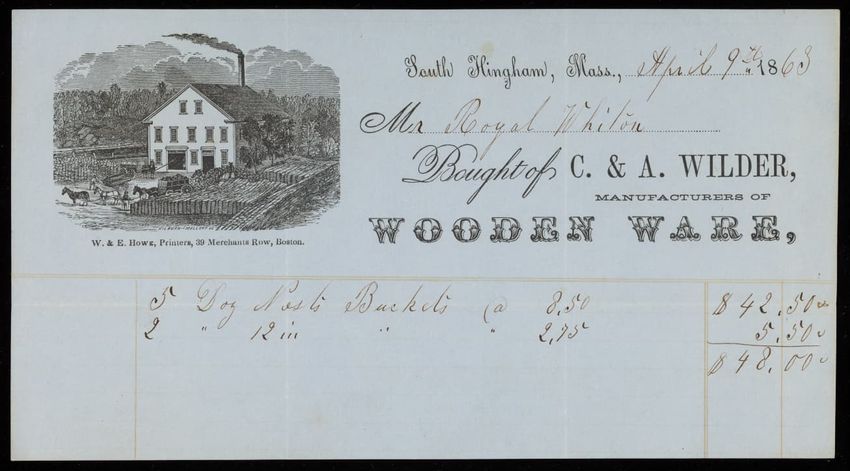 South Hingham, Mass., April 9th 1863
Mr Royal Whiton
Bought of C. & A. WILDER,
MANUFACTURERS OF
WOODEN WARE,
W. & E. Howe, Printers, 39 Merchants Row, Boston.
5 Doz Nests Buckets @ 8,50 $42.50
2 " 12 in " " 2,75 5.50
$48.00